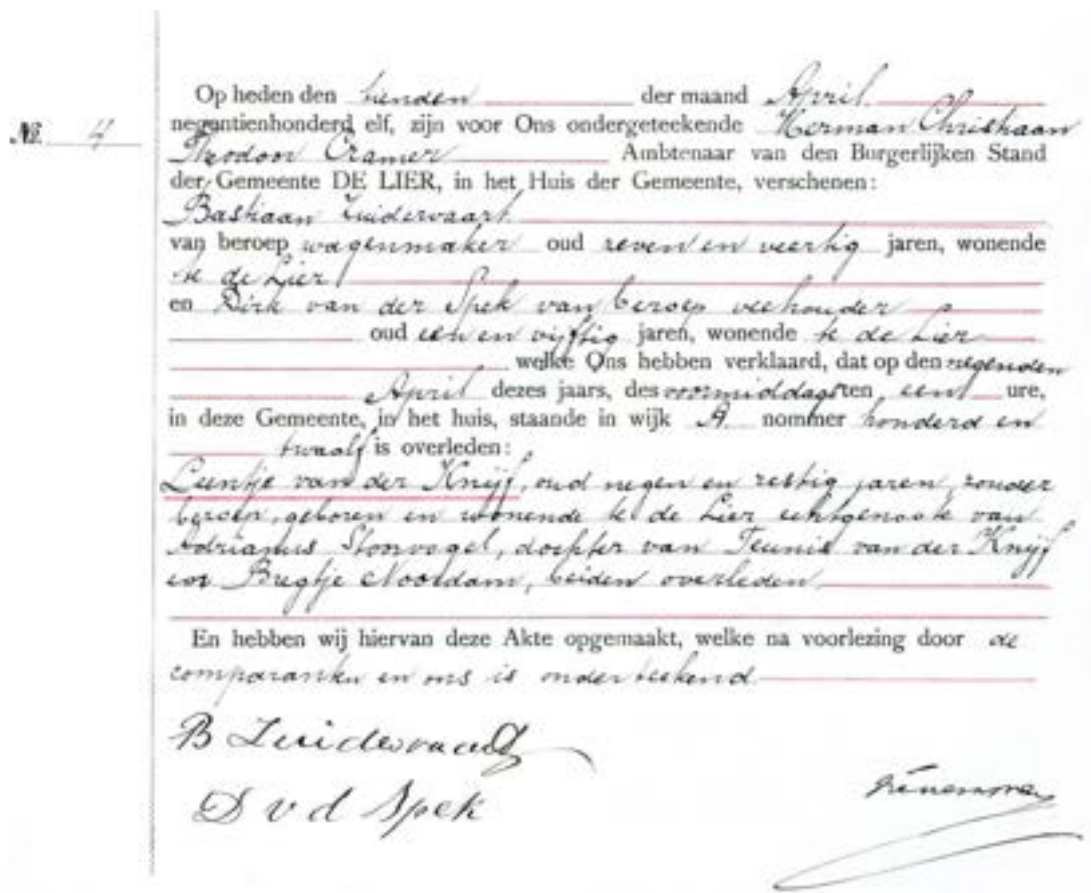 Op heden den tienden der maand April
No. 4 negentienhonderd elf, zijn voor Ons ondergeteekende Herman Christiaan
Theodoor Cramer Ambtenaar van den Burgerlijken Stand
der Gemeente DE LIER, in het Huis der Gemeente, verschenen:
Bastiaan Zuidervaart
van beroep wagenmaker oud zeven en veertig jaren, wonende
te de Lier
en Dirk van der Spek van beroep veehouder
oud een en vijftig jaren, wonende te de Lier
welke Ons hebben verklaard, dat op den negenden
April dezes jaars, des voormiddags ten een ure,
in deze Gemeente, in het huis, staande in wijk A nommer honderd en
twaalf is overleden:
Leentje van der Knijf, oud negen en zestig jaren, zonder
beroep, geboren en wonende te de Lier echtgenoote van
Adrianus Stonvogel, dochter van Teunis van der Knijf
en Bregtje Noordam, beiden overleden
En hebben wij hiervan deze Akte opgemaakt, welke na voorlezing door de
comparanten en ons is onderteekend
B Zuidervaart
D v d Spek